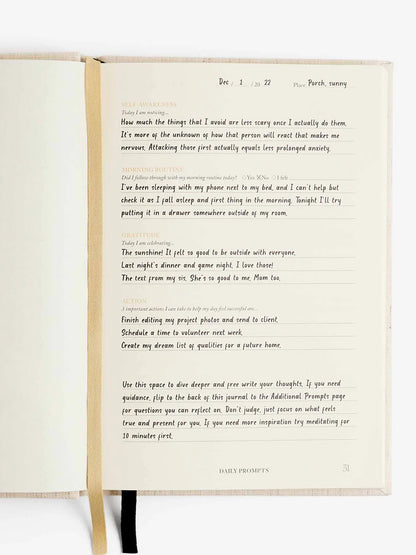 Dec / 1 / 20 22 Place Porch, sunny
SELF-AWARENESS
Today I am noticing...
How much the things that I avoid are less scary once I actually do them.
It's more of the unknown of how that person will react that makes me
nervous. Attacking those first actually equals less prolonged anxiety.
MORNING ROUTINE
Did I follow through with my morning routine today? ○Yes ⊗No ○I felt
I've been sleeping with my phone next to my bed, and I can't help but
check it as I fall asleep and first thing in the morning. Tonight I'll try
putting it in a drawer somewhere outside of my room.
GRATITUDE
Today I am celebrating...
The sunshine! It felt so good to be outside with everyone.
Last night's dinner and game night. I love those!
The text from my sis. She's so good to me. Mom too.
ACTION
3 important actions I can take to help my day feel successful are...
Finish editing my project photos and send to client.
Schedule a time to volunteer next week.
Create my dream list of qualities for a future home.
Use this space to dive deeper and free write your thoughts. If you need
guidance, flip to the back of this journal to the Additional Prompts page
for questions you can reflect on. Don't judge, just focus on what feels
true and present for you. If you need more inspiration try meditating for
10 minutes first.
DAILY PROMPTS 31